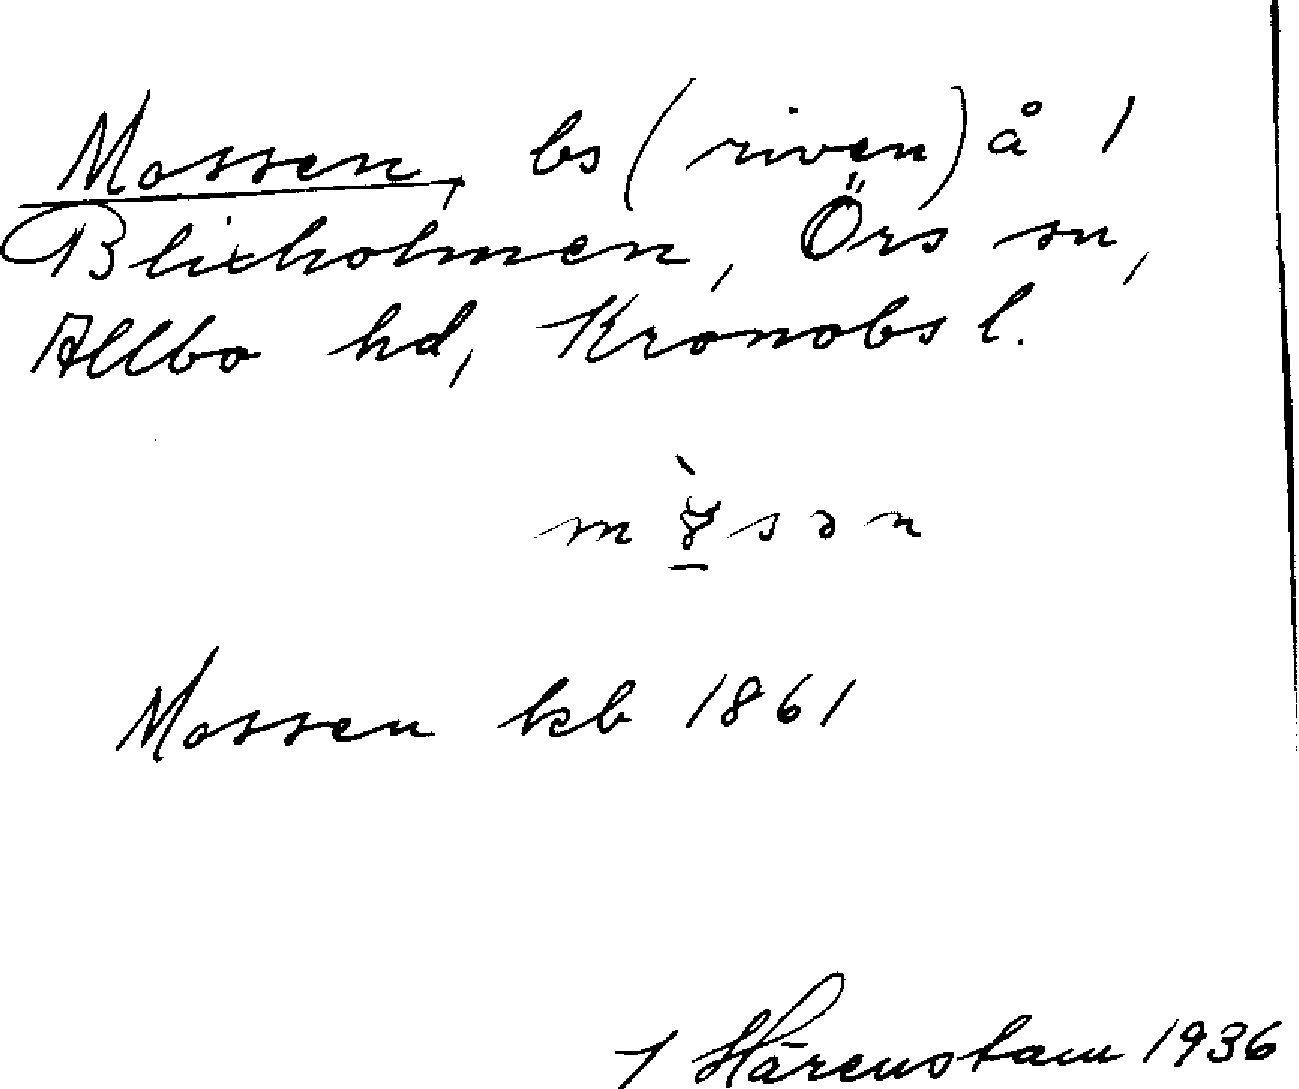 Mossen, bs (riven) å 1
Blixholmen, Örs sn,
Allbo hd, Kronobs l.
Mossen kb 1861
Härenstam 1936